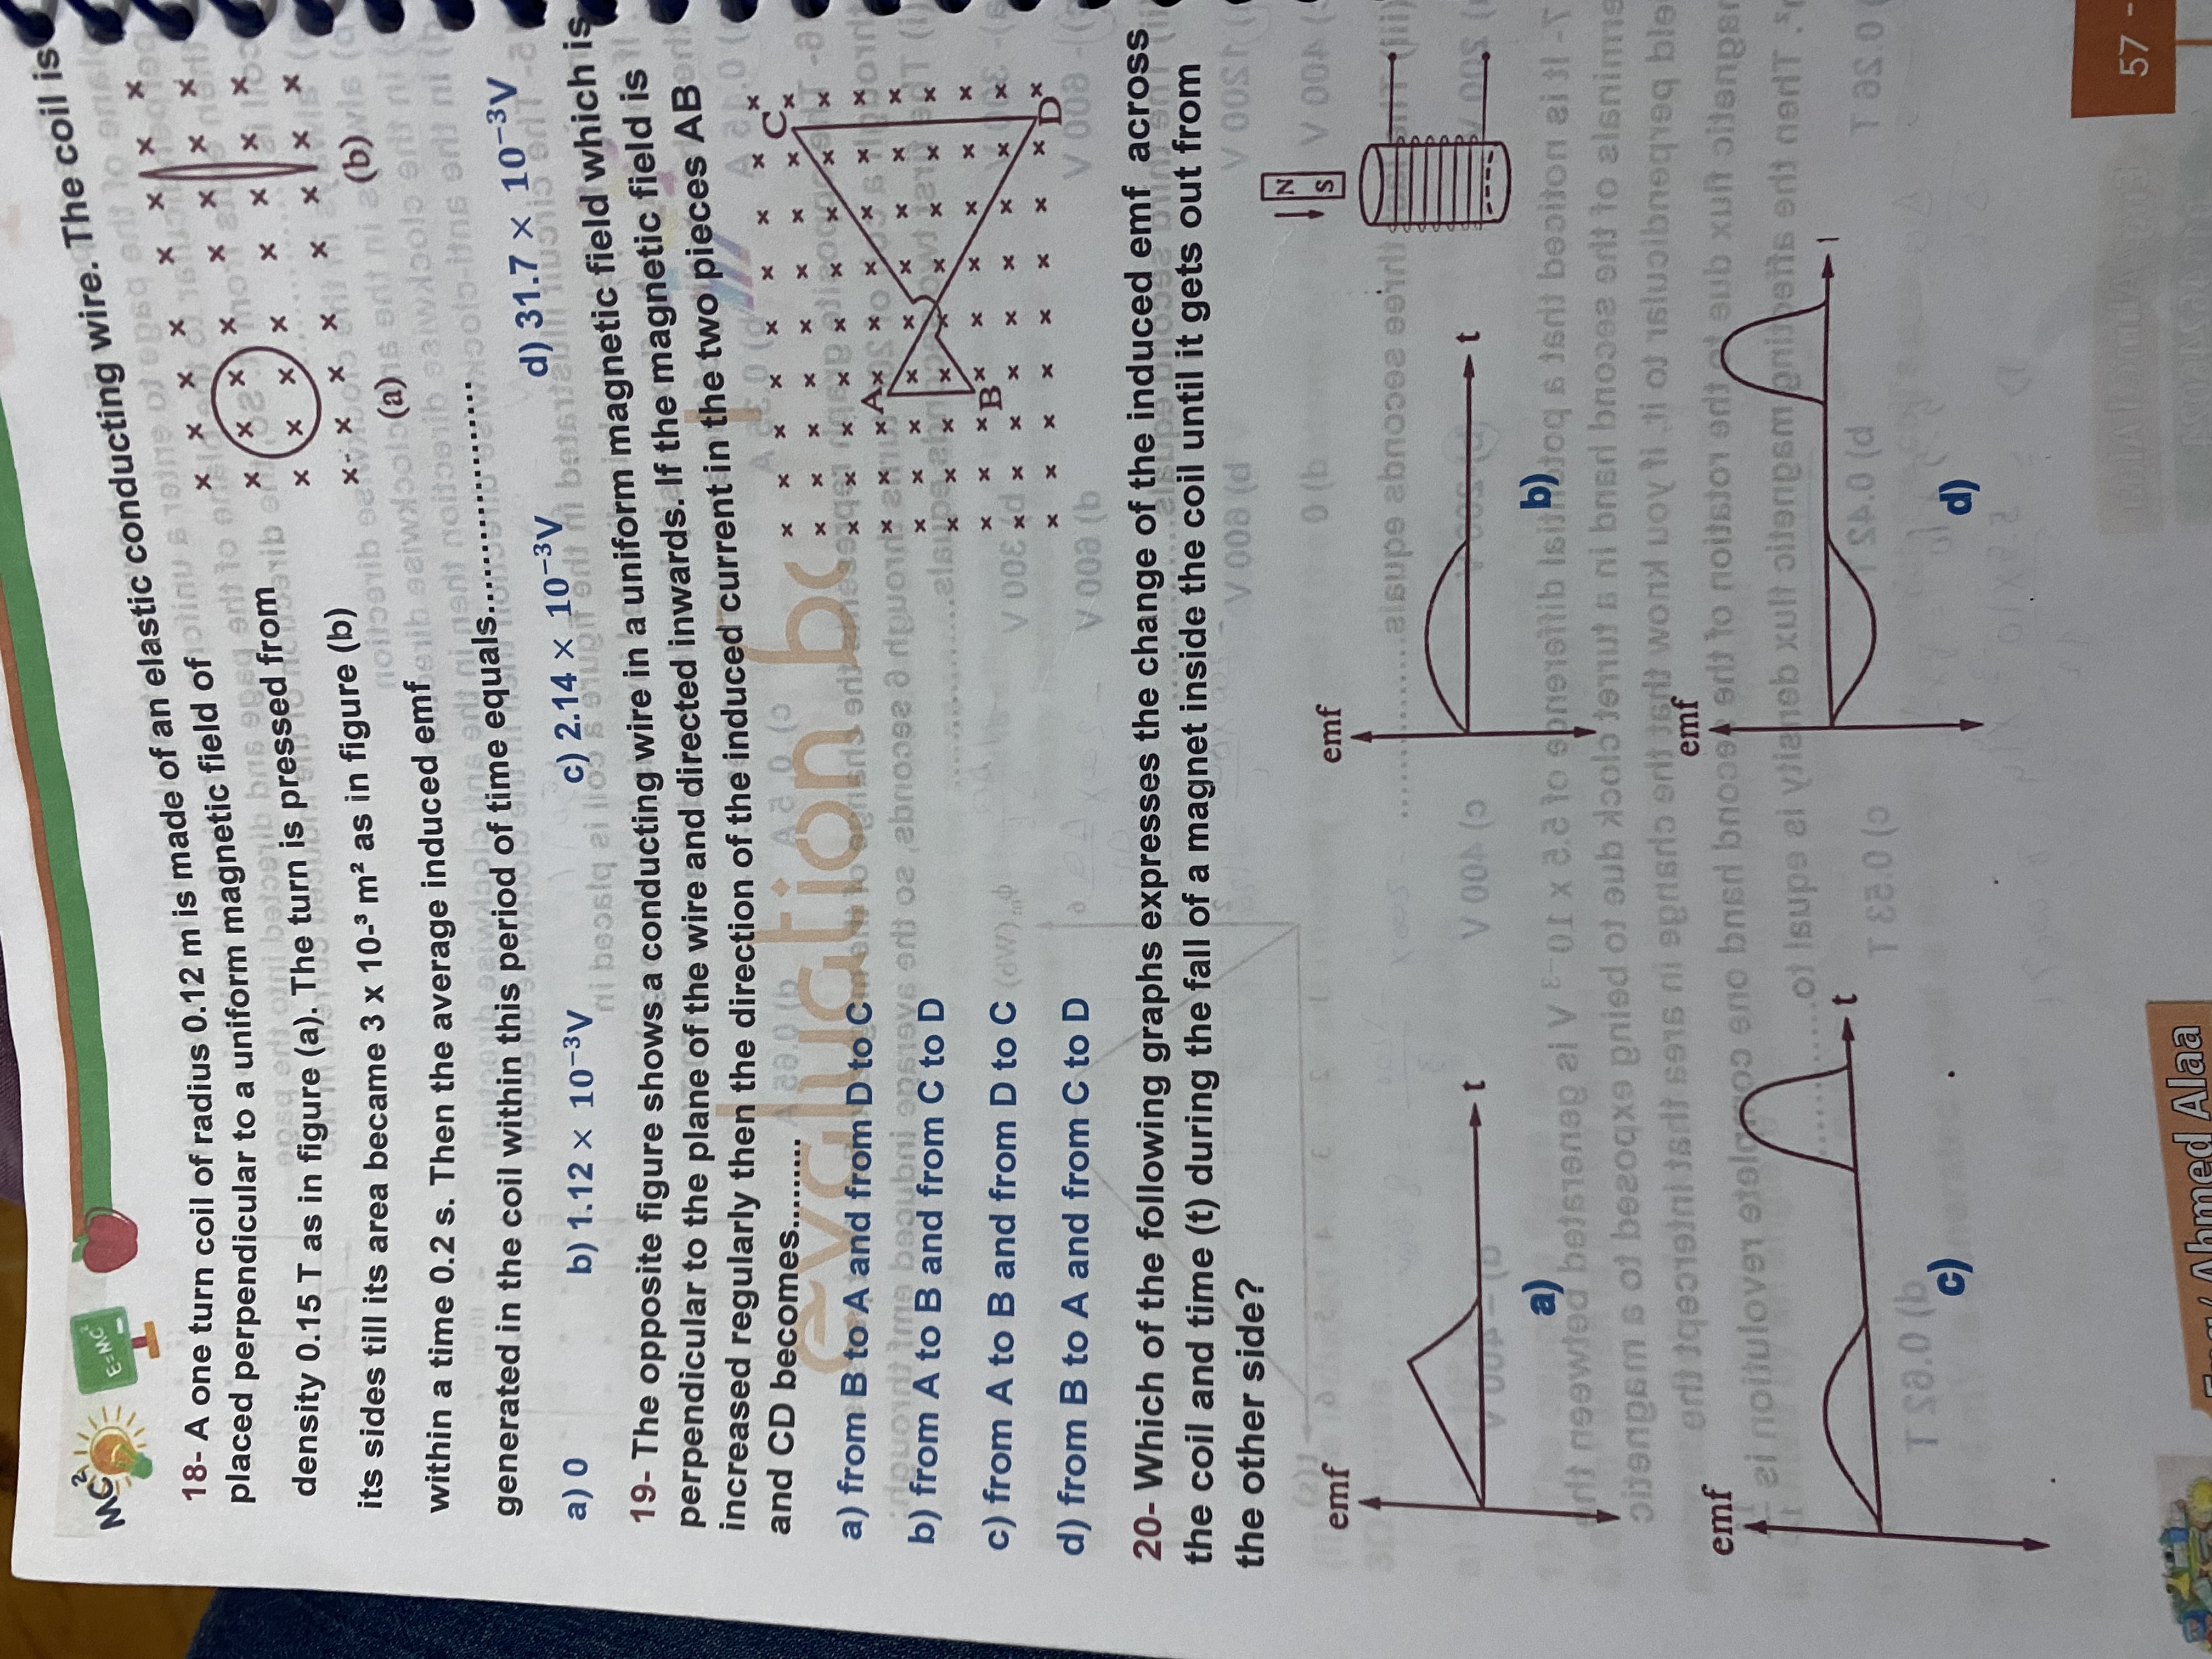 MC²
E=MC²
18- A one turn coil of radius 0.12 m is made of an elastic conducting wire. The coil is
placed perpendicular to a uniform magnetic field of
density 0.15 T as in figure (a). The turn is pressed from
its sides till its area became 3 x 10-³ m² as in figure (b)
within a time 0.2 s. Then the average induced emf
generated in the coil within this period of time equals...................
(a)
(b)
a) 0
b) 1.12 × 10⁻³V
c) 2.14 × 10⁻³V
d) 31.7 × 10⁻³V
19- The opposite figure shows a conducting wire in a uniform magnetic field which is
perpendicular to the plane of the wire and directed inwards. If the magnetic field is
increased regularly then the direction of the induced current in the two pieces AB
and CD becomes.........
a) from B to A and from D to C
b) from A to B and from C to D
c) from A to B and from D to C
d) from B to A and from C to D
A
B
C
D
evaluation
20- Which of the following graphs expresses the change of the induced emf across
the coil and time (t) during the fall of a magnet inside the coil until it gets out from
the other side?
N
S
emf
t
a)
emf
t
b)
emf
t
c)
emf
d)
57 -
Eng/ Ahmed Alaa